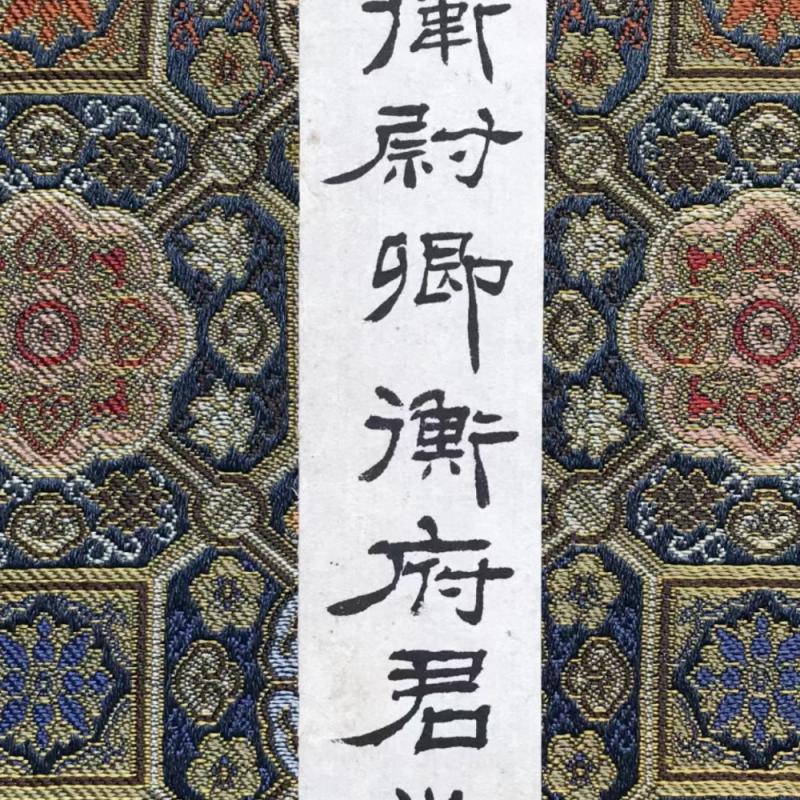 衛尉卿衡府君